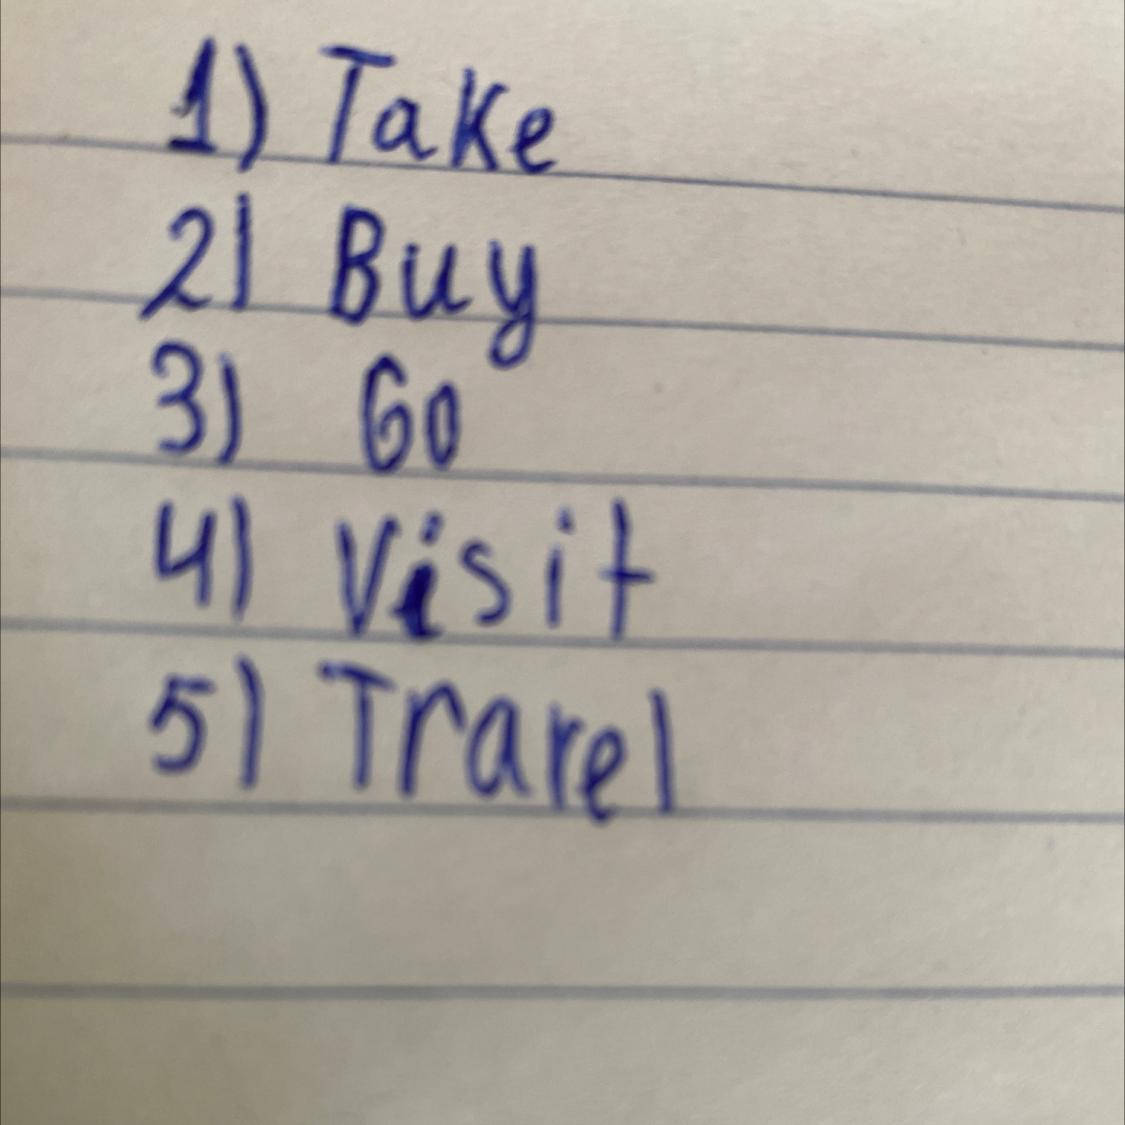 1) Take
2) Buy
3) Go
4) Visit
5) Travel